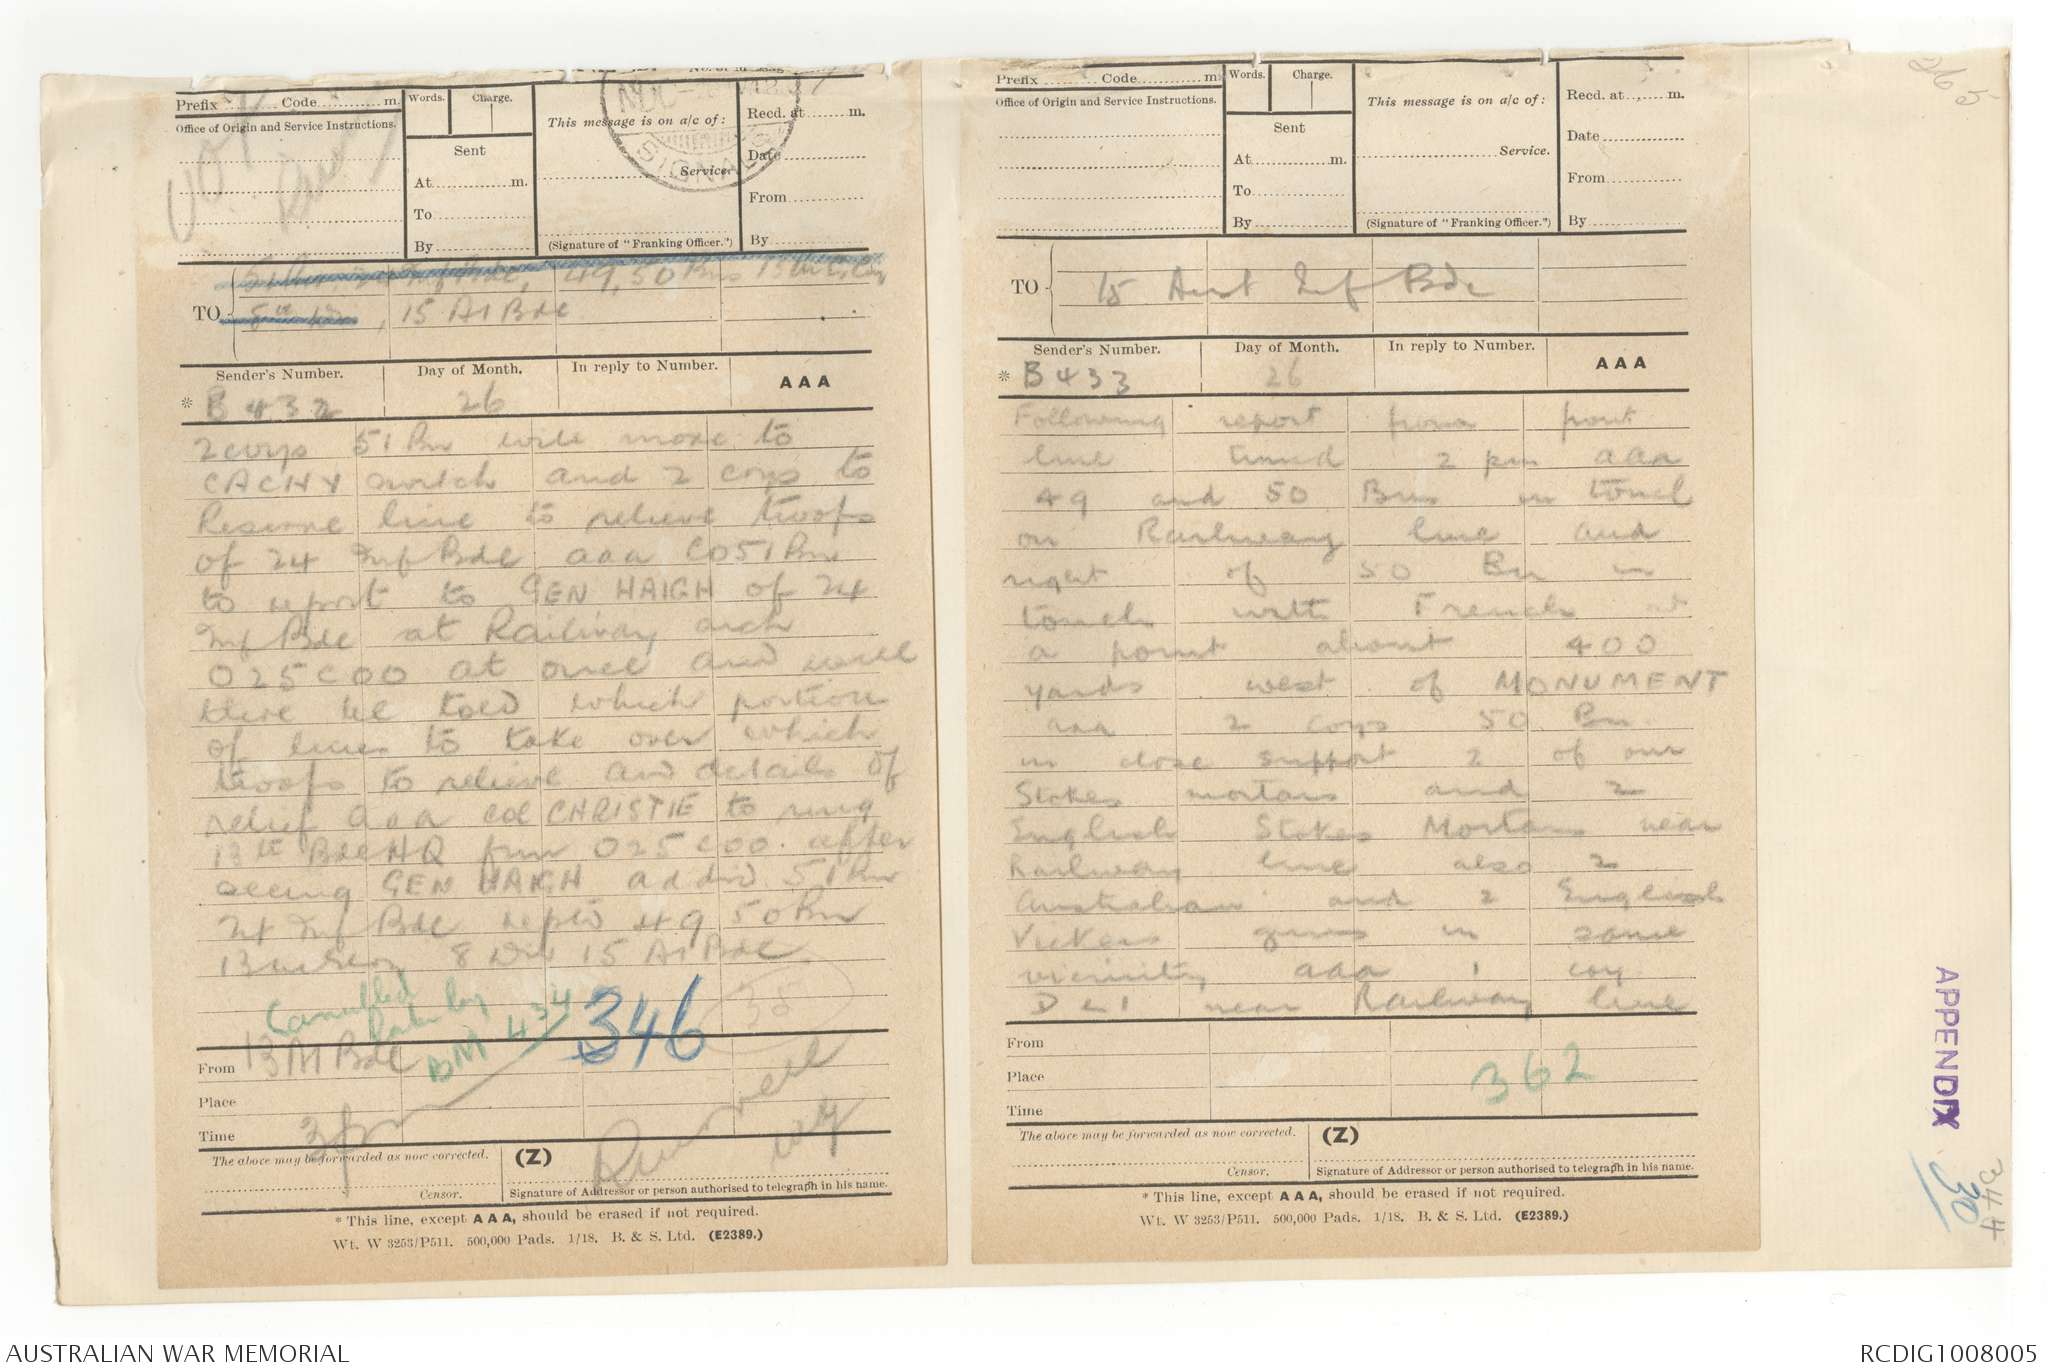 Prefix Code m.
Words. Charge.
This message is on a/c of:
Recd. at m.
Office of Origin and Service Instructions.
Sent
At m.
To
By
Service.
(Signature of "Franking Officer.")
Date
From
By
SIGNALS
TO
49, 50 Bns
, 15 AI Bde
Sender's Number. Day of Month. In reply to Number. AAA
* B 432 26
2 coys 51 Bn will move to
CACHY switch and 2 coys to
Reserve line to relieve troops
of 24 Inf Bde aaa CO 51 Bn
to report to GEN HAIGH of 24
Inf Bde at Railway arch
O25C00 at once and will
there be told which portion
of lines to take over which
troops to relieve and details of
relief aaa Col CHRISTIE to ring
13th Bde HQ from O25C00 after
seeing GEN HAIGH addsd 51 Bn
24 Inf Bde reptd 49 50 Bn
8 Div 15 AI Bde
Cancelled
later by
BM 434
346
35
From 13 AI Bde
Place
Time 3pm
The above may be forwarded as now corrected. (Z)
Censor. Signature of Addressor or person authorised to telegraph in his name.
* This line, except AAA, should be erased if not required.
Wt. W 3253/P511. 500,000 Pads. 1/18. B. & S. Ltd. (E2389.)
Prefix Code m.
Words. Charge.
This message is on a/c of:
Recd. at m.
Office of Origin and Service Instructions.
Sent
At m.
To
By
Service.
(Signature of "Franking Officer.")
Date
From
By
TO 15 Aust Inf Bde
Sender's Number. Day of Month. In reply to Number. AAA
* B 433 26
Following report from front
line timed 2 pm aaa
49 and 50 Bns in touch
on Railway line and
right of 50 Bn in
touch with French at
a point about 400
yards west of MONUMENT
aaa 2 coys 50 Bn
in close support 2 of our
Stokes mortars and 2
English Stokes Mortars near
Railway line also 2
Australian and 2 English
Vickers guns in same
vicinity aaa 1 coy
D L I near Railway line
From
Place
Time
362
The above may be forwarded as now corrected. (Z)
Censor. Signature of Addressor or person authorised to telegraph in his name.
* This line, except AAA, should be erased if not required.
Wt. W 3253/P511. 500,000 Pads. 1/18. B. & S. Ltd. (E2389.)
265
APPENDIX
30
344
AUSTRALIAN WAR MEMORIAL
RCDIG1008005